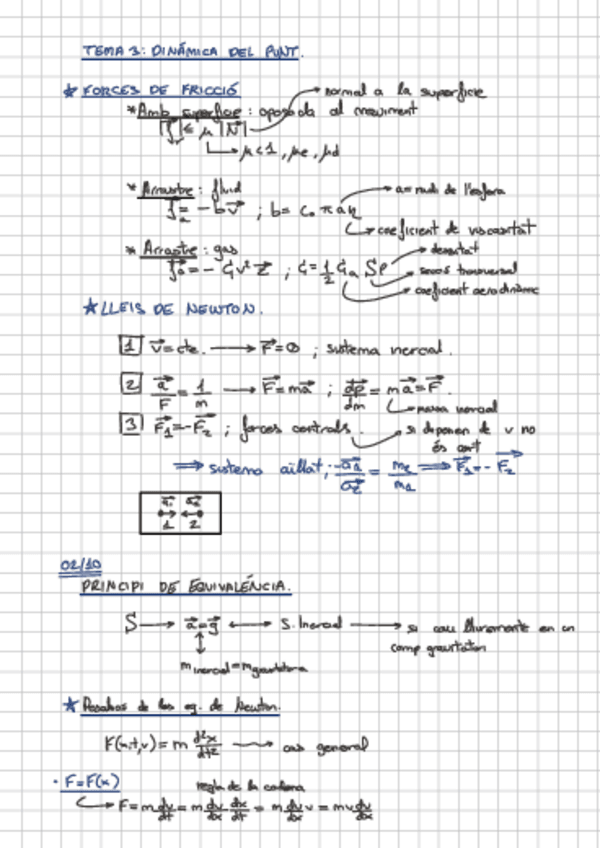 TEMA 3: DINÁMICA DEL PUNT.
★ FORCES DE FRICCIÓ
→ normal a la superfície
* Amb superfície: oposada al moviment
|f⃗r| ≤ μ |N⃗|
↳ μ<1, μe, μd
* Arrastre: fluid
→ a=radi de l'esfera
f⃗a = -bv⃗ ; b= c₀ π a η
↳ coeficient de viscositat
* Arrastre: gas
→ densitat
f⃗a = - G v² ; G = 1/2 Ca Sρ
→ secció transversal
→ coeficient aerodinàmic
★ LLEIS DE NEWTON.
1 v⃗=cte. → F⃗=0 ; sistema inercial.
2 a⃗/F = 1/m → F⃗=ma⃗ ; dp⃗/dm = ma⃗=F⃗.
↳ massa inercial
3 F⃗1=-F⃗2 ; forces centrals.
→ si depenen de v no
és cert
⇒ sistema aïllat; -a⃗1/a⃗2 = m2/m1 ⇒ F⃗1=-F⃗2
a⃗1 a⃗2
1 2
02/10
PRINCIPI DE EQUIVALÈNCIA.
S → a⃗=g⃗ ↔ S. Inercial → si cau lliurement en un
camp gravitatori
m inercial=m gravitatòria
★ de les eq. de Newton.
F(x,t,v) = m d²x/dt² → cas general
· F=F(x)
regla de la cadena
↳ F= m dv/dt = m dv/dx dx/dt = m dv/dx v = mv dv/dx